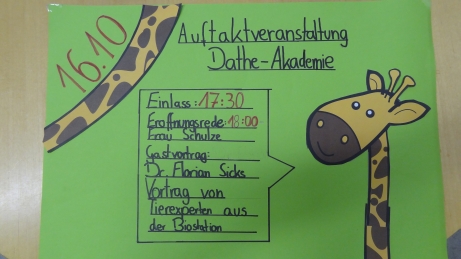 16.10
Auftaktveranstaltung
Dathe-Akademie
Einlass: 17:30
Eröffnungsrede: 18:00
Frau Schulze
Gastvortrag:
Dr. Florian Sicks
Vortrag von
Tierexperten aus
der Biostation